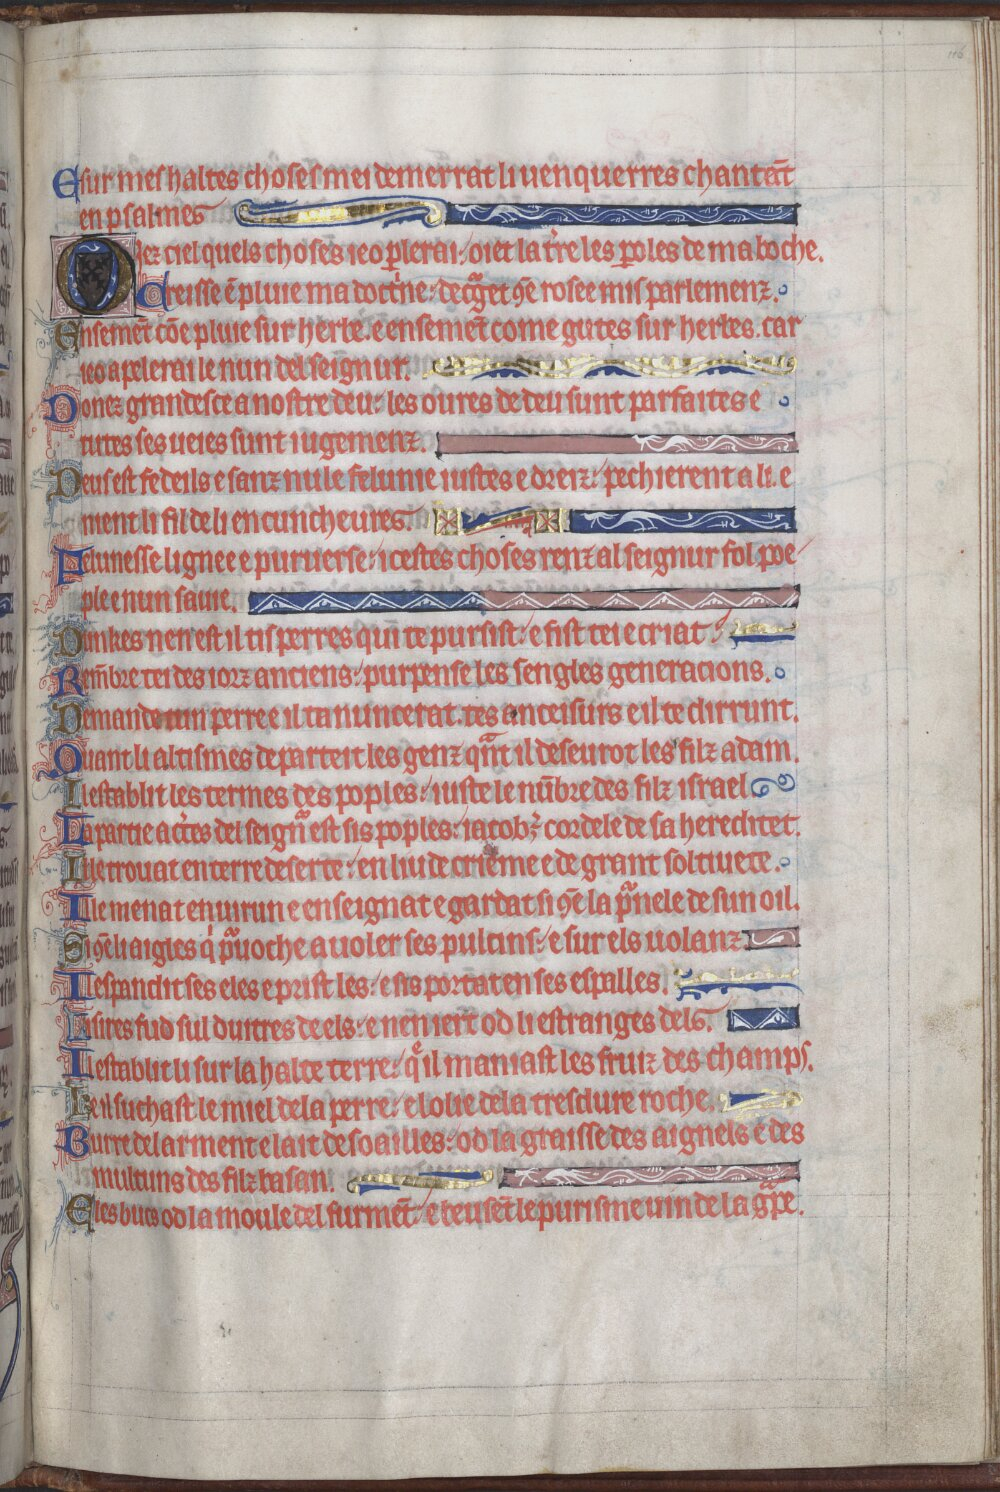 E sur mes haltes choses mei demerrat li uenquerres chantãt
en psalmes
Oiez ciel quels choses ieo ꝑlerai⁏ oiet la t̃re les ꝑoles de ma boche.
Creisse cẽ pluie ma doctͥne⁏ decᷓget ꝯe rosee mis parlemenz.
Ensemẽt cõe pluie sur herbe. e ensemẽt come gutes sur herbes. car
ieo apelerai le nun del seignur.
Donez grandesce a nostre deu⁏ les oures de deu sunt parfaites e
tutes ses ueies sunt iugemenz.
Deus est fedeils e sanz nule felunie iustes e dreiz⁏ pechierent a li. e
nient li fil de li en cuncheures.
Felunesse lignee e puruerse⁏ icestes choses renz al seignur fol poe
ple e nun sauie.
Dunkes nen est il tis perres qui te pursist⁏ e fist tei e criat
Remẽbre tei des iorz anciens⁏ purpense les sengles generacions.
Demande tun perre e il ta nuncerat. tes anceisurs e il te dirrunt.
Quant li altismes departeit les genz qñt il deseurot les filz adam.
Il establit les termes des poples⁏ iuste le nũbre des filz israel
La partie acᵉtes del seigñ est sis poples⁏ iacob ⁊ cordele de sa hereditet.
Il le trouat en terre deserte⁏ en liu de crieme e de grant soltiuete.
Il le menat enuirun e enseignat e gardat si ꝯe la pᷓnele de sun oil.
Si ꝯe li aigles qͥ pᷓuoche a uoler ses pulcins⁏ e sur els uolanz
Il espandit ses eles e prist les⁏ e sis portat en ses espalles.
Li sires fud sul duitres de els⁏ e nen iert od li estranges dels.
Il establit li sur la halte terre⁏ qͤ il maniast les fruiz des champs.
Ke il suchast le miel de la perre⁏ e lolie de la tresdure roche.
Burre del arment e lait de soailles⁏ od la graisse des aignels e des
multuns des filz basan.
E les bucs od la moule del furmẽt⁏ e beusẽt le purisme uin de la gᷓpe.